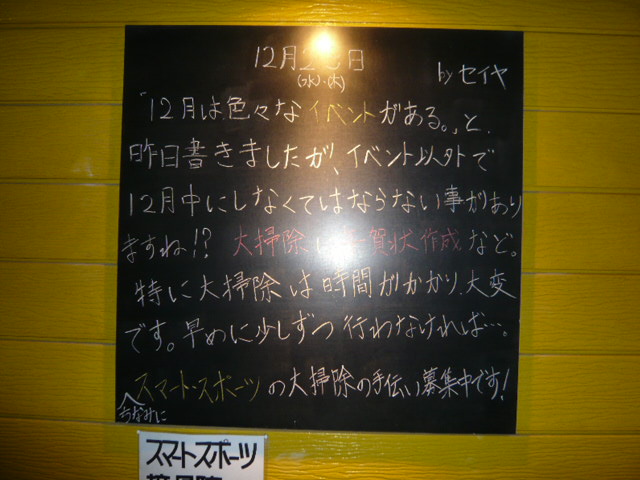 12月2 日
(水)・(木)
by セイヤ
「12月は色々なイベントがある。」と
昨日書きましたが、イベント以外で
12月中にしなくてはならない事があり
ますね!? 大掃除 年賀状作成など。
特に大掃除は時間がかかり、大変
です。早めに少しずつ行わなければ…。
スマート・スポーツの大掃除の手伝い募集中です!
ちなみに
スマートスポーツ